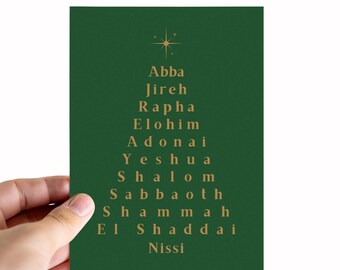 Abba
Jireh
Rapha
Elohim
Adonai
Yeshua
Shalom
Sabbaoth
Shammah
El Shaddai
Nissi